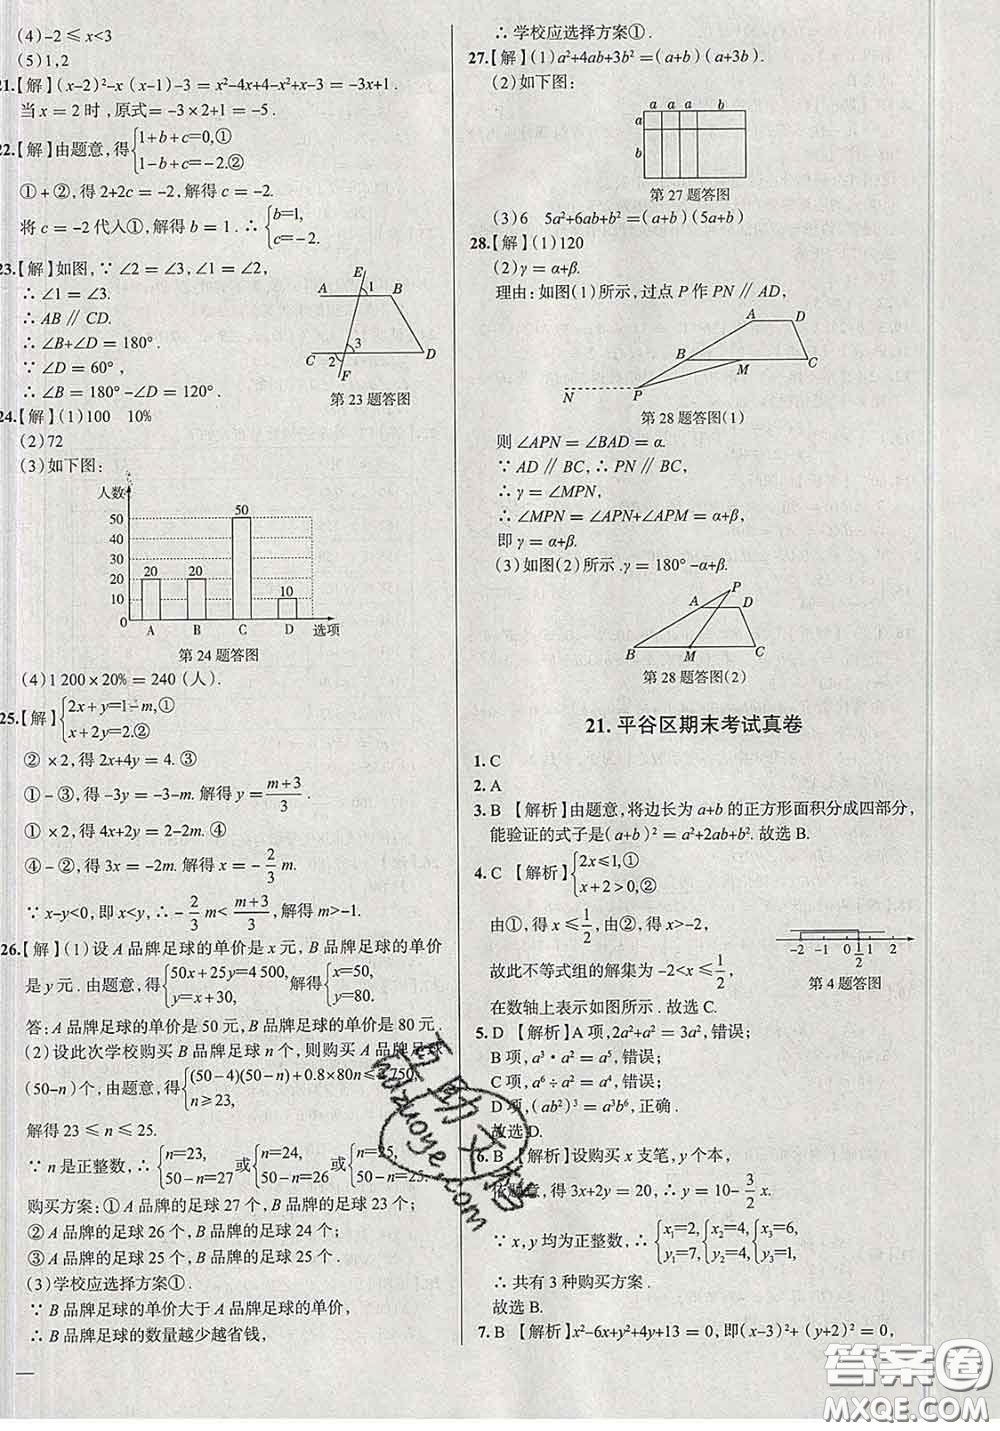 (4)-2≤x<3
(5)1,2
21.【解】(x-2)²-x(x-1)-3=x²-4x+4-x²+x-3=-3x+1.
当x=2时,原式=-3×2+1=-5.
22.【解】由题意,得{1+b+c=0,①
1-b+c=-2.②
①+②,得2+2c=-2,解得c=-2.
将c=-2代人①,解得b=1.∴{b=1,
c=-2.
23.【解】如图,∵∠2=∠3,∠1=∠2,
∴∠1=∠3.
∴AB∥CD.
∴∠B+∠D=180°.
∵∠D=60°,
∴∠B=180°-∠D=120°.
E
A 1 B
3
C 2 D
F
第23题答图
24.【解】(1)100 10%
(2)72
(3)如下图:
人数
50
40
30
20
10
0
20 20 50 10
A B C D 选项
第24题答图
(4)1 200×20%=240(人).
25.【解】{2x+y=1-m,①
x+2y=2.②
②×2,得2x+4y=4.③
①-③,得-3y=-3-m.解得y=(m+3)/3.
①×2,得4x+2y=2-2m.④
④-②,得3x=-2m.解得x=-2/3 m.
∵x-y<0,即x<y,∴-2/3 m<(m+3)/3,解得m>-1.
26.【解】(1)设A品牌足球的单价是x元,B品牌足球的单价
是y元.由题意,得{50x+25y=4 500, 解得{x=50,
y=x+30, y=80.
答:A品牌足球的单价是50元,B品牌足球的单价是80元.
(2)设此次学校购买B品牌足球n个,则购买A品牌足球
(50-n)个.由题意,得{(50-4)(50-n)+0.8×80n≤2 750,
n≥23,
解得23≤n≤25.
∵n是正整数,∴{n=23, 或{n=24, 或{n=25,
50-n=27 50-n=26 50-n=25.
购买方案:①A品牌的足球27个,B品牌的足球23个;
②A品牌的足球26个,B品牌的足球24个;
③A品牌的足球25个,B品牌的足球25个.
(3)学校应选择方案①.
∵B品牌足球的单价大于A品牌足球的单价,
∴B品牌足球的数量越少越省钱,
∴学校应选择方案①.
27.【解】(1)a²+4ab+3b²=(a+b)(a+3b).
(2)如下图:
a a a b
a
b
第27题答图
(3)6 5a²+6ab+b²=(a+b)(5a+b)
28.【解】(1)120
(2)γ=α+β.
理由:如图(1)所示,过点P作PN∥AD,
A D
B M C
N P
第28题答图(1)
则∠APN=∠BAD=α.
∵AD∥BC,∴PN∥BC.
∴γ=∠MPN,
∴∠MPN=∠APN+∠APM=α+β,
即γ=α+β.
(3)如图(2)所示.γ=180°-α+β.
P
A D
B M C
第28题答图(2)
21.平谷区期末考试真卷
1.C
2.A
3.B【解析】由题意,将边长为a+b的正方形面积分成四部分,
能验证的式子是(a+b)²=a²+2ab+b².故选B.
4.C【解析】{2x≤1,①
x+2>0,②
由①,得x≤1/2,由②,得x>-2,
故此不等式组的解集为-2<x≤1/2,
在数轴上表示如图所示.故选C.
-2 -1 0 1/2 1 2
第4题答图
5.D【解析】A项,2a²+a²=3a²,错误;
B项,a³·a²=a⁵,错误;
C项,a⁶÷a²=a⁴,错误;
D项,(ab²)³=a³b⁶,正确.
故选D.
6.B【解析】设购买x支笔,y个本,
依题意,得3x+2y=20,∴y=10-3/2 x.
∵x,y均为正整数,∴{x₁=2, {x₂=4, {x₃=6,
y₁=7, y₂=4, y₃=1,
∴共有3种购买方案.
故选B.
7.B【解析】x²-6x+y²+4y+13=0,即(x-3)²+(y+2)²=0,
互助文档
huzuoye.com
答案圈
MXQE.COM